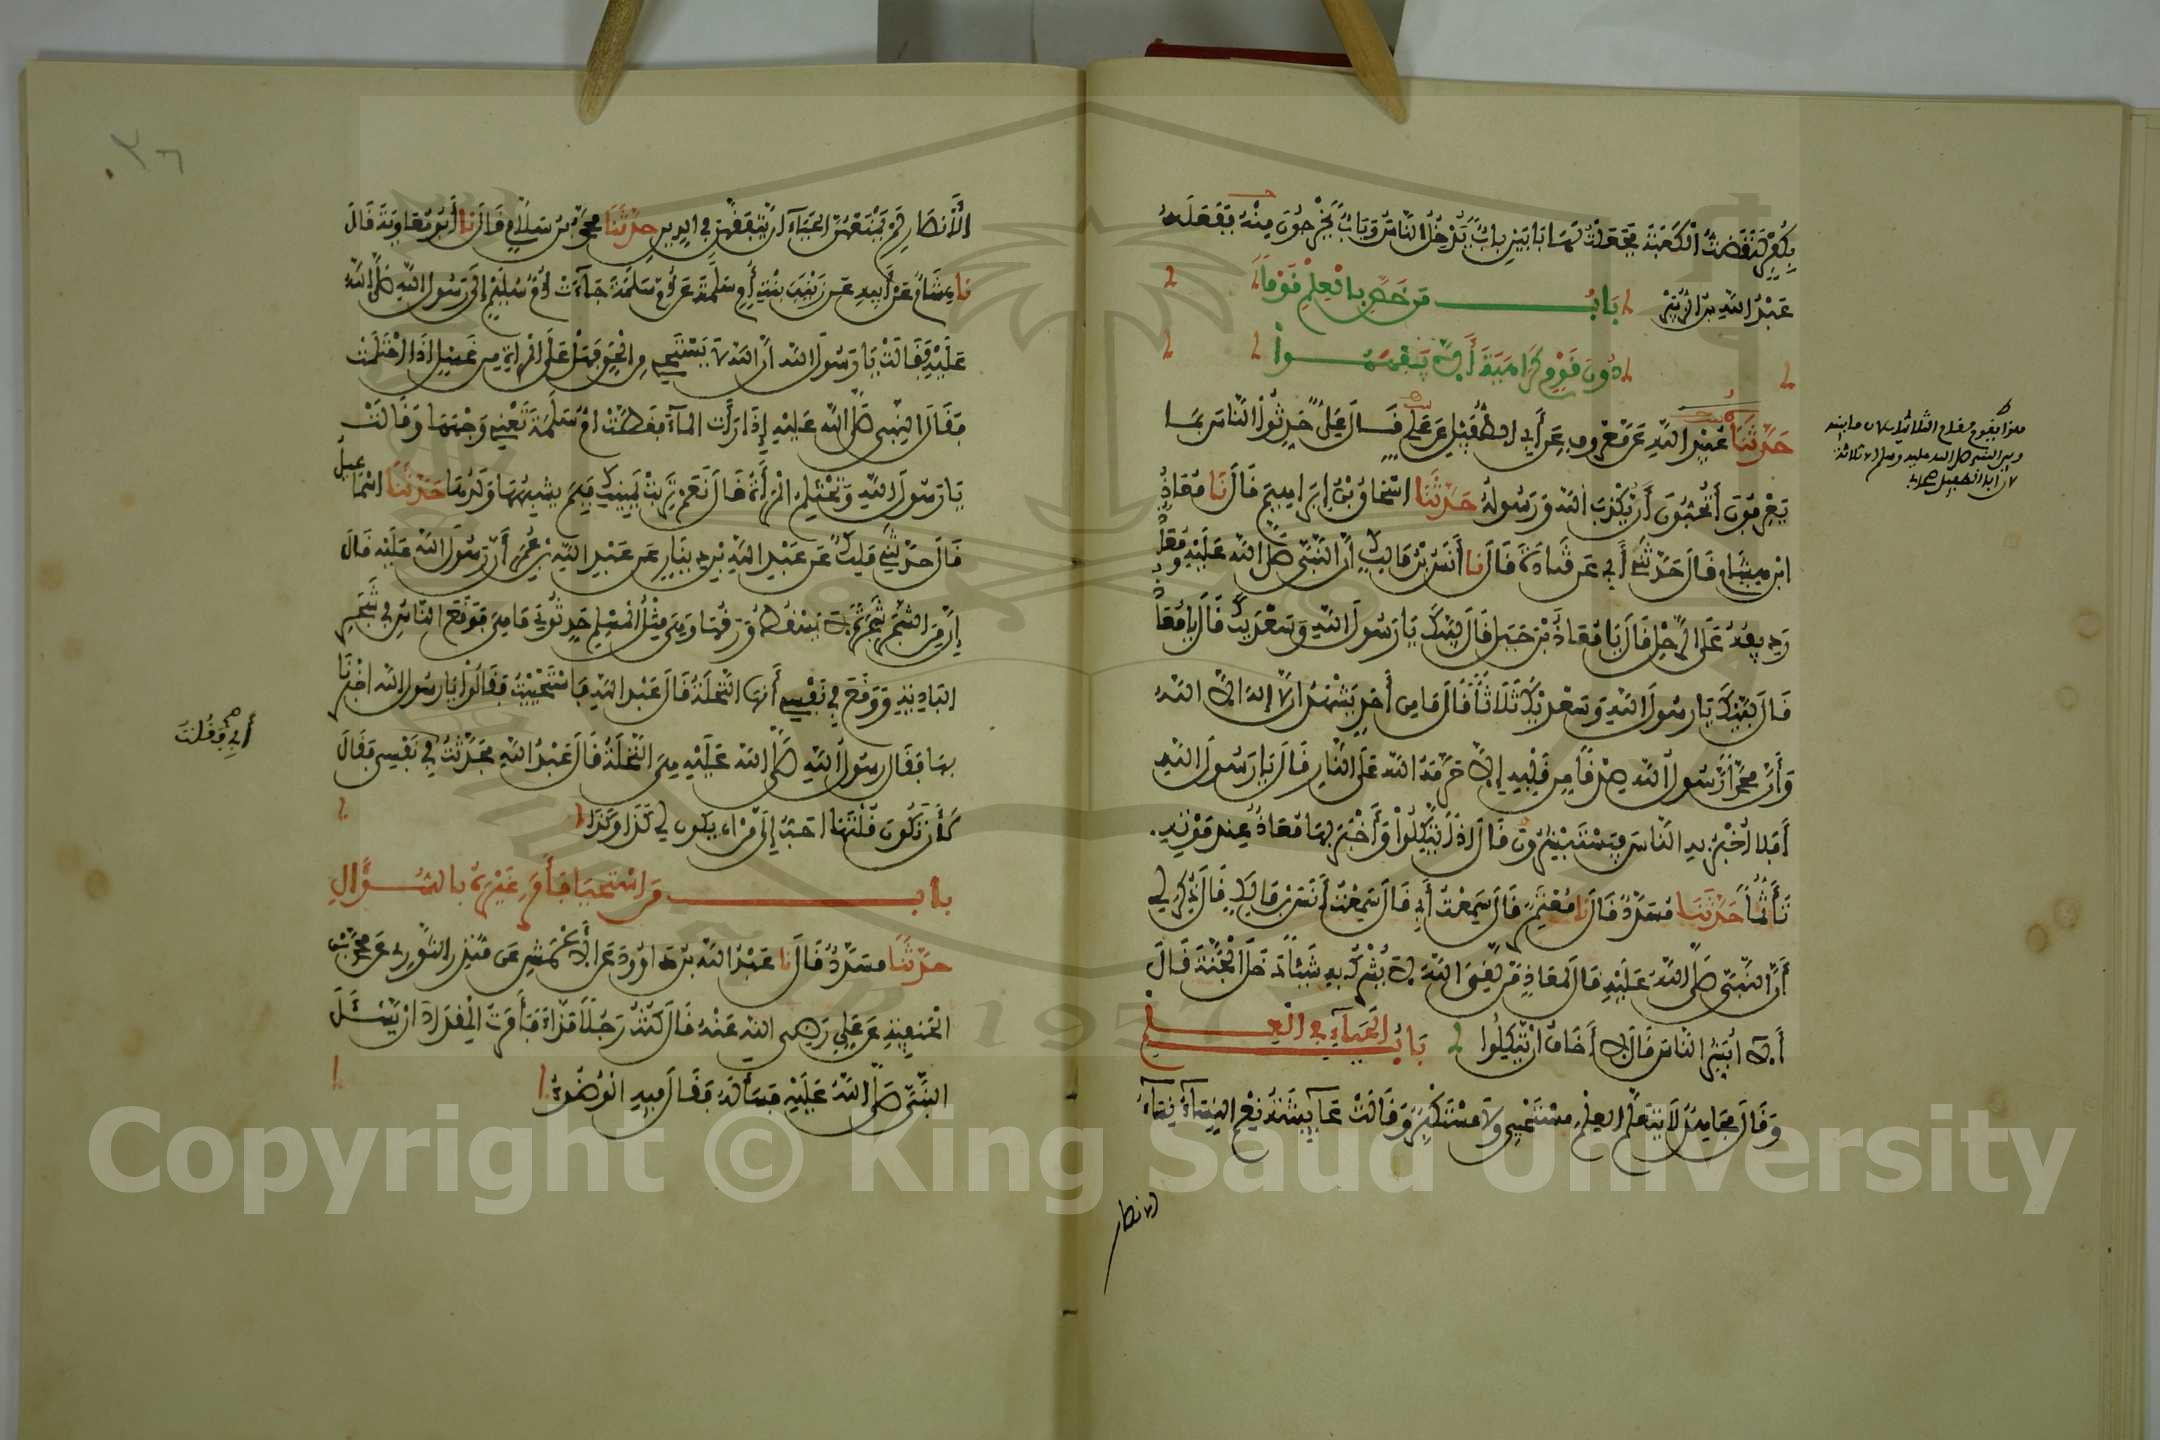 بكفر لنقضت الكعبة فجعلت لها بابين باب يدخل الناس وباب يخرجون منه ففعله
عبد الله بن الزبير باب من خص بالعلم قوما
دون قوم كراهية أن لا يفهموا
حدثنا عبيد الله عن معروف عن أبي الطفيل عن علي قال علي حدثوا الناس بما
يعرفون أتحبون أن يكذب الله ورسوله حدثنا إسحاق بن إبراهيم قال نا معاذ
ابن هشام قال حدثني أبي عن قتادة قال نا أنس بن مالك أن النبي صلى الله عليه ومعاذ
رديفه على الرحل قال يا معاذ بن جبل قال لبيك يا رسول الله وسعديك قال يا معاذ
قال لبيك يا رسول الله وسعديك ثلاثا قال ما من أحد يشهد أن لا إله إلا الله
وأن محمدا رسول الله صدقا من قلبه إلا حرمه الله على النار قال يا رسول الله
أفلا أخبر به الناس فيستبشرون قال إذا يتكلوا وأخبر بها معاذ عند موته
تأثما حدثنا مسدد قال نا معتمر قال سمعت أبي قال سمعت أنس بن مالك قال ذكر لي
أن النبي صلى الله عليه قال لمعاذ من لقي الله لا يشرك به شيئا دخل الجنة قال
ألا أبشر الناس قال لا أخاف أن يتكلوا باب الحياء في العلم
وقال مجاهد لا يتعلم العلم مستحيي ولا مستكبر وقالت عائشة نعم النساء نساء
الانصار
هذا يقوم مقام الثلاثيات لان ما بينه
وبين النبي صلى الله عليه وسلم الا ثلاثة
لان أبا الطفيل صحابي
٣٦
الأنصار لم يمنعهن الحياء أن يتفقهن في الدين حدثنا محمد بن سلام قال نا أبو معاوية قال
نا هشام عن أبيه عن زينب بنت أم سلمة عن أم سلمة جاءت أم سليم إلى رسول الله صلى الله
عليه فقالت يا رسول الله إن الله لا يستحيي من الحق فهل على المرأة من غسل إذا احتلمت
فقال النبي صلى الله عليه إذا رأت الماء فغطت أم سلمة تعني وجهها وقالت
يا رسول الله وتحتلم المرأة قال نعم تربت يمينك فبم يشبهها ولدها حدثنا إسماعيل
قال حدثني مالك عن عبد الله بن دينار عن عبد الله بن عمر أن رسول الله عليه قال
إن من الشجر شجرة لا يسقط ورقها وهي مثل المسلم حدثوني ما هي فوقع الناس في شجر
البادية ووقع في نفسي أنها النخلة قال عبد الله فاستحييت فقالوا يا رسول الله أخبرنا
بها فقال رسول الله صلى الله عليه هي النخلة قال عبد الله فحدثت في نفسي فقال
لأن تكون قلتها أحب إلي من أن يكون لي كذا وكذا
باب من استحيا فأمر غيره بالسؤال
حدثنا مسدد قال نا عبد الله بن داوود عن الأعمش عن منذر الثوري عن محمد بن
الحنفية عن علي رضي الله عنه قال كنت رجلا مذاء فأمرت المقداد أن يسئل
النبي صلى الله عليه فسأله فقال فيه الوضوء
Copyright © King Saud University
1957